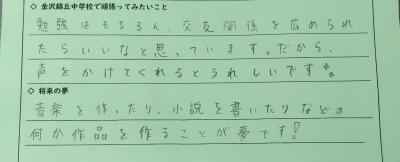 ◇ 金沢錦丘中学校で頑張ってみたいこと
勉強はもちろん、交友関係を広められ
たらいいなと思っています。だから、
声をかけてくれるとうれしいです
◇ 将来の夢
音楽を作ったり、小説を書いたりなどの
何か作品を作ることが夢です!